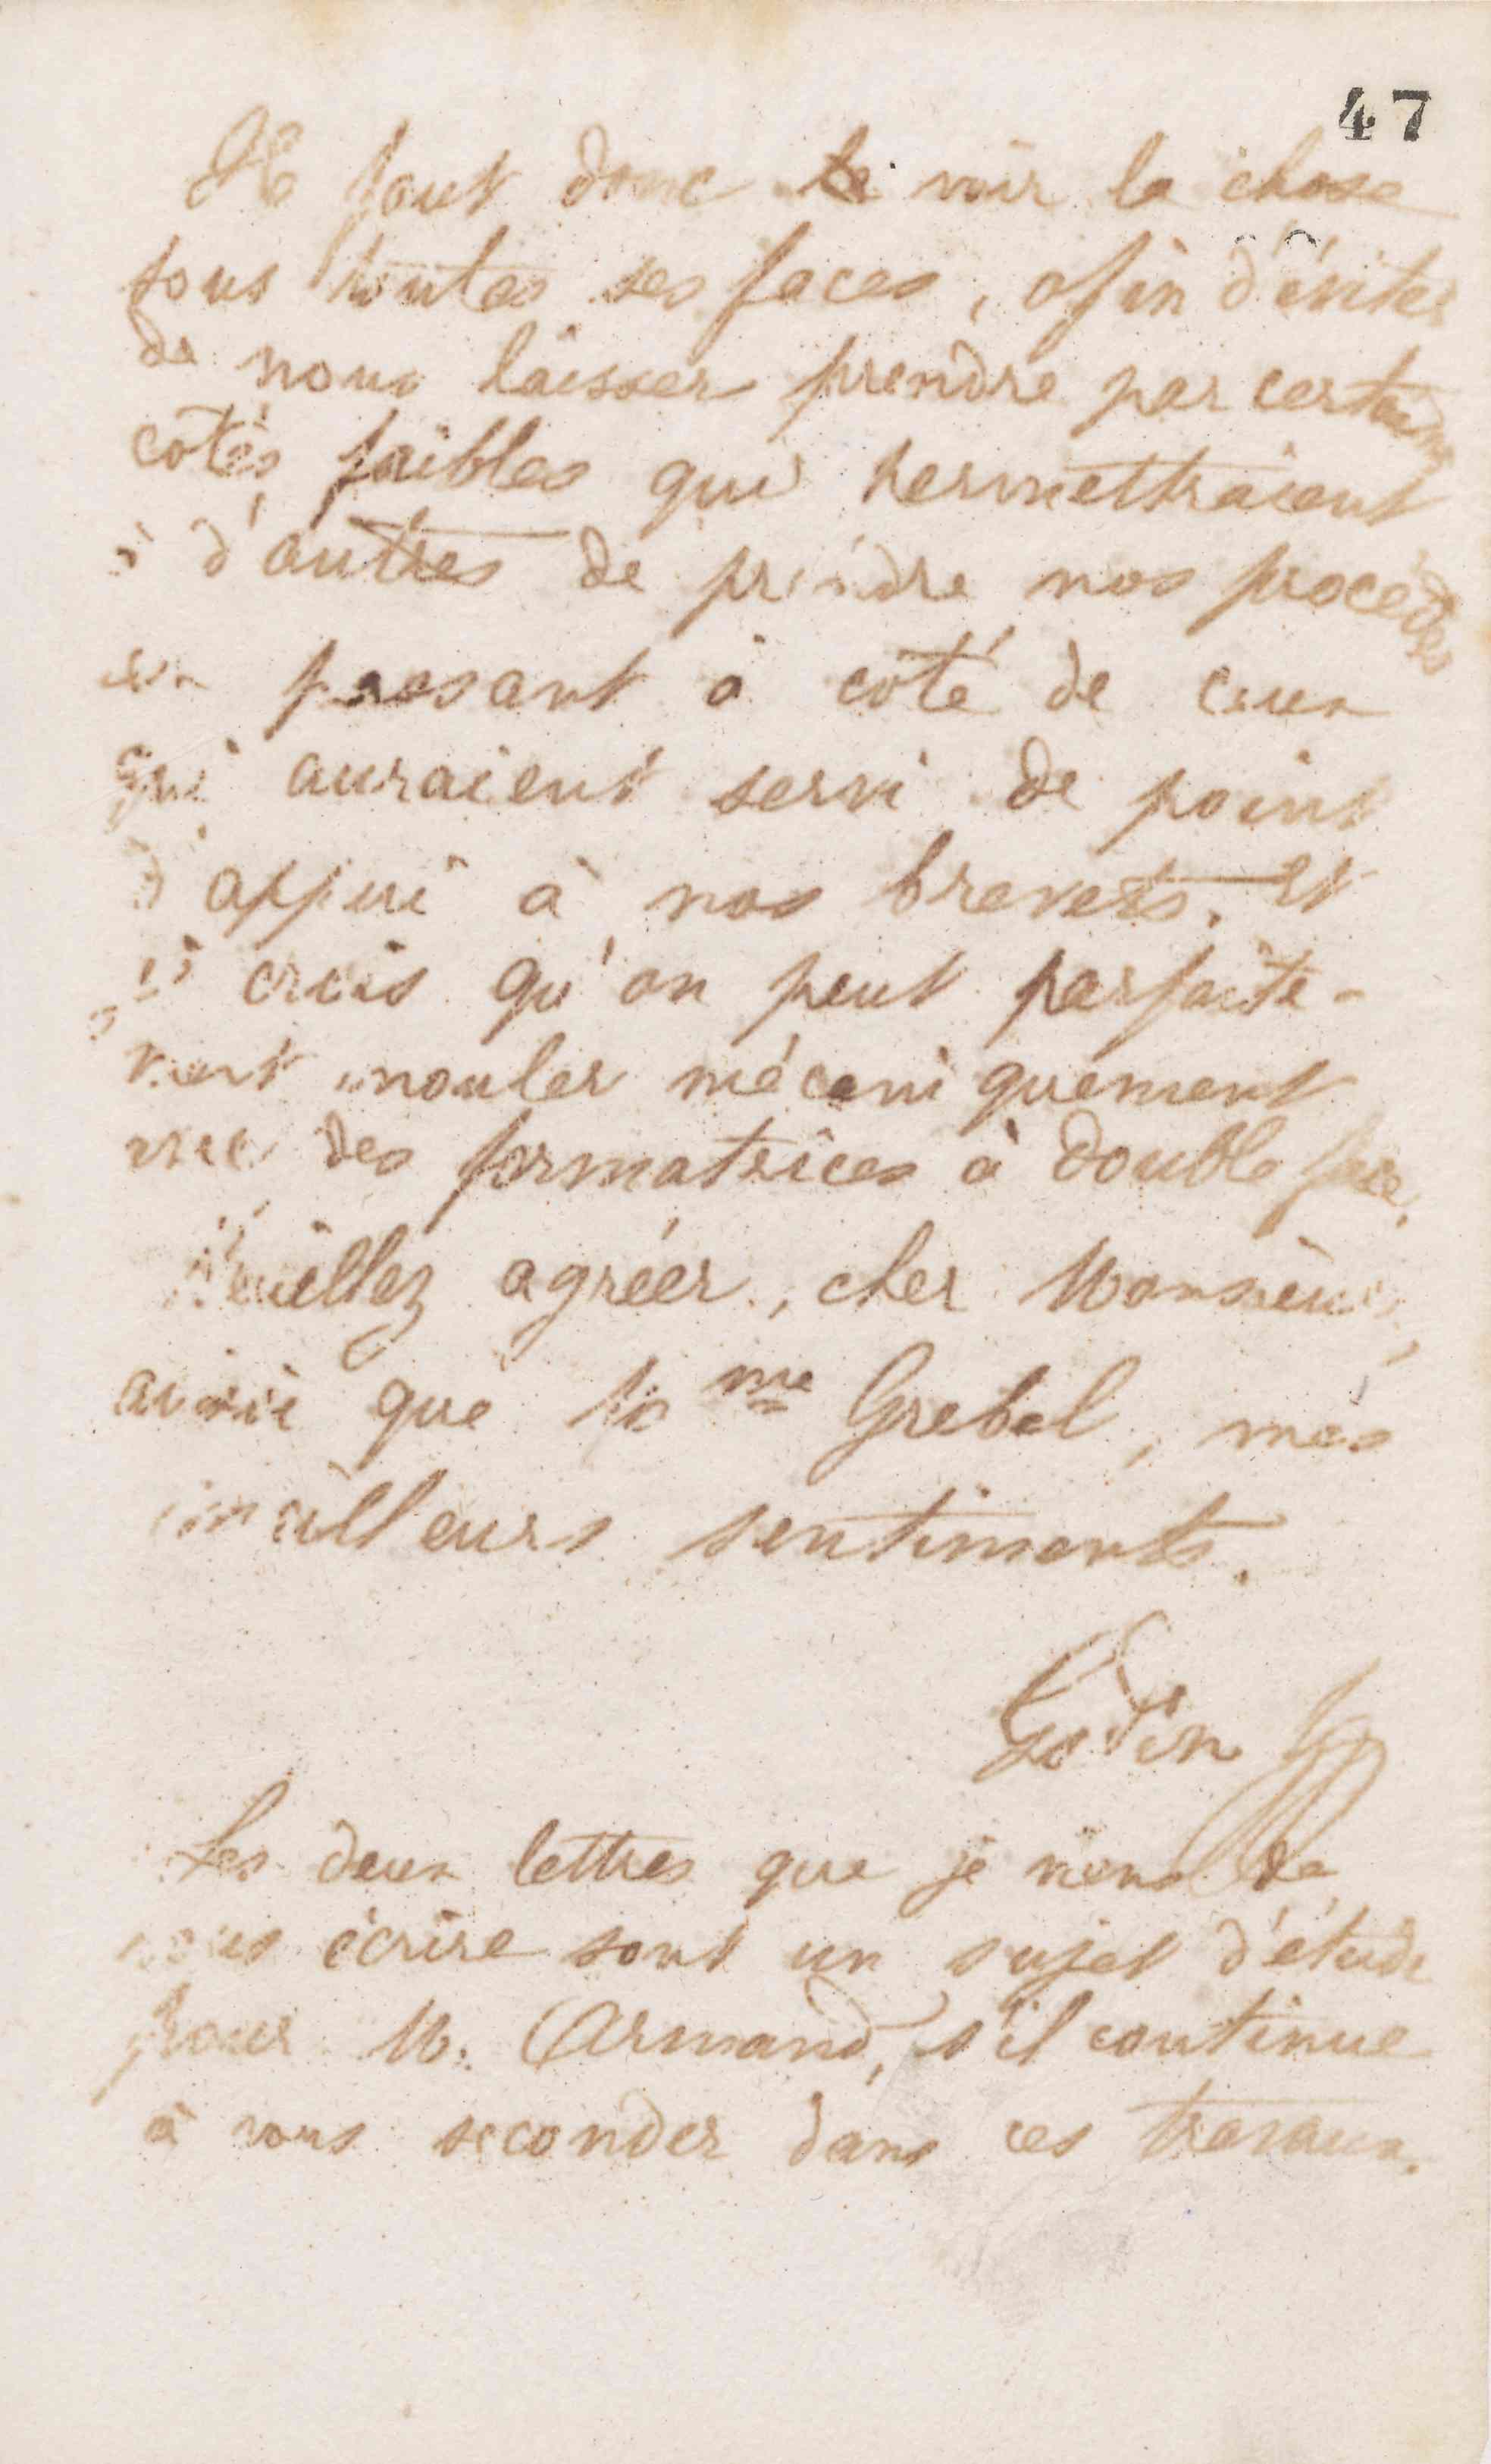 47
Il faut donc voir la chose
sous toutes ses faces, afin d'éviter
de nous laisser prendre par certains
côtés faibles qui permettraient
à d'autres de prendre nos procédés
en passant à côté de ceux
qui auraient servi de point
d'appui à nos brevets. Et
je crois qu'on peut parfaite-
ment mouler mécaniquement
avec des formatrices à double face.
Veuillez agréer, cher Monsieur,
ainsi que Mme Grebel, mes
meilleurs sentiments.
Godin
Les deux lettres que je viens de
vous écrire sont un sujet d'étude
pour M. Armand, s'il continue
à vous seconder dans ces travaux.